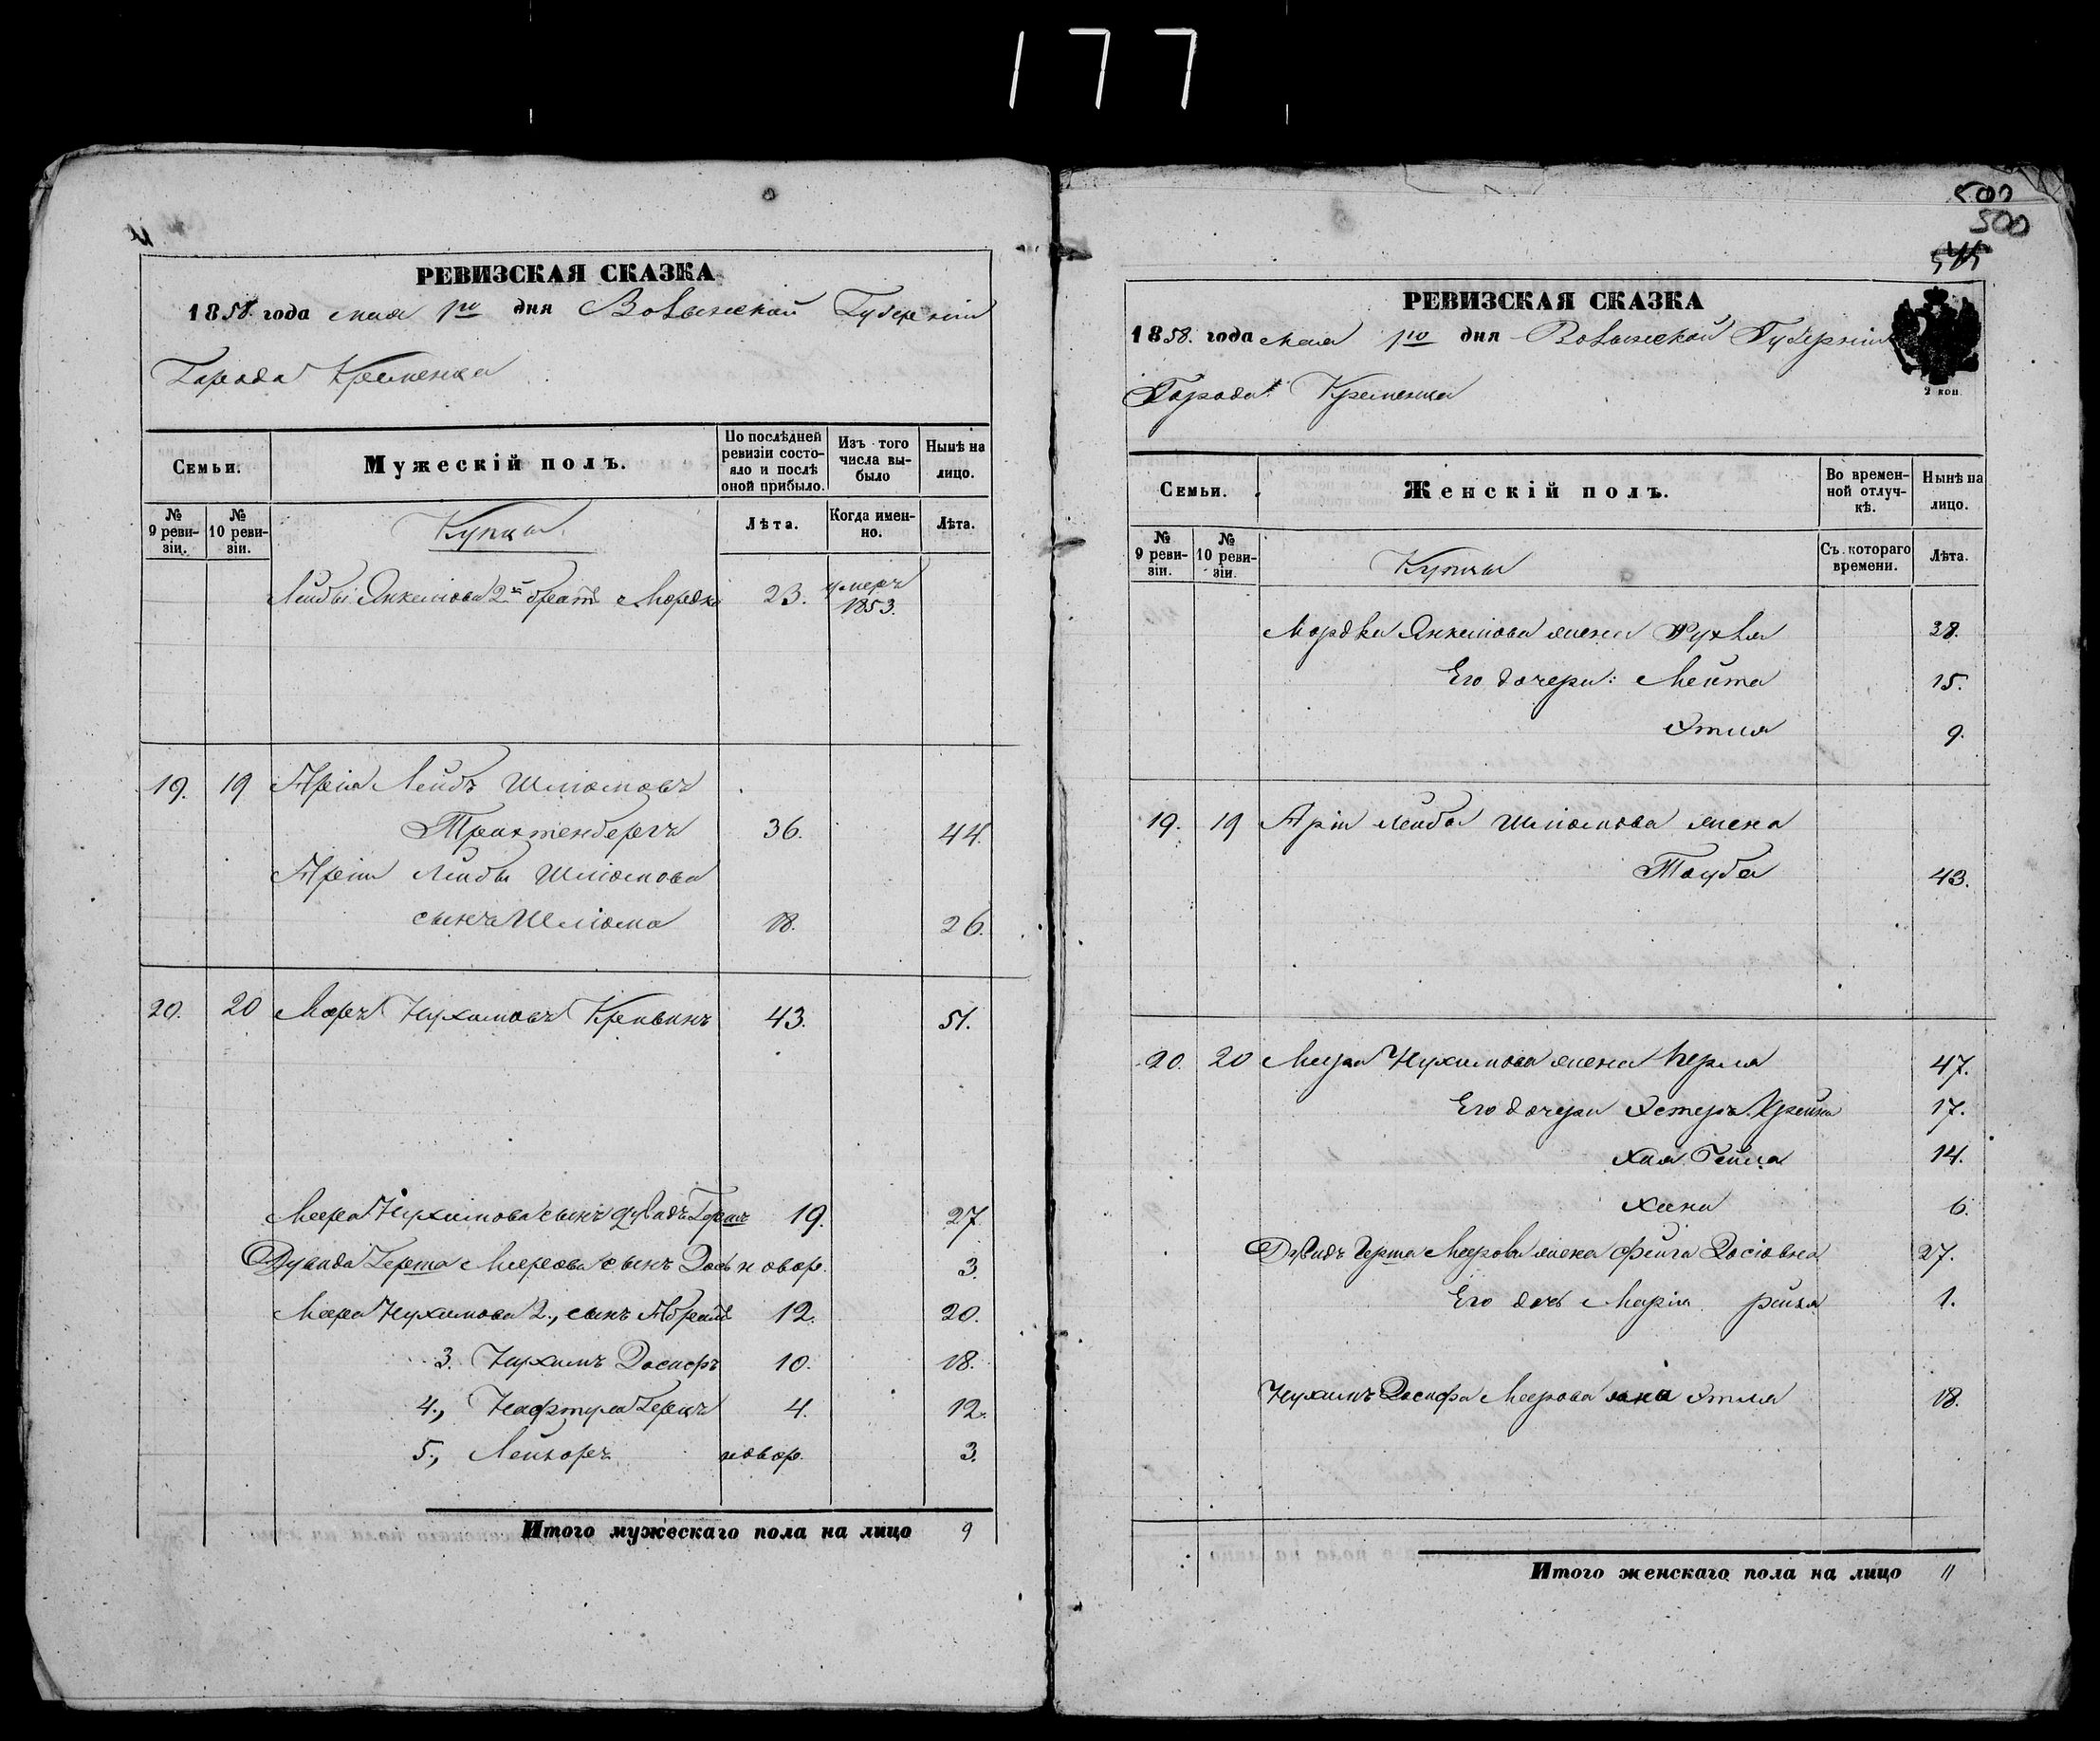 177
РЕВИЗСКАЯ СКАЗКА
1858 года мая 1го дня Волынской Губерніи
Города Кременца
Семьи.
Мужескій полъ.
По послѣдней ревизіи состояло и послѣ оной прибыло.
Изъ того числа выбыло
Нынѣ на лицо.
№ 9 ревизіи.
№ 10 ревизіи.
Купцы
Лѣта.
Когда именно.
Лѣта.
Лейбы Янкелева 2й братъ Мордко 23. умеръ 1853.
19. 19 Арія Лейбъ Шліомовъ
Трахтенбергъ 36. 44.
Аріи Лейбы Шліомова
сынъ Шліома 18. 26.
20. 20 Мееръ Нухимовъ 43. 51.
Меера Нухимова сынъ Дувидъ Гершъ 19. 27
Дувида Герша Меерова сынъ новор. 3.
Меера Нухимова 2., сынъ Абрамъ 12. 20.
3. Нухимъ Іосифъ 10. 18.
4., Нафтула Герцъ 4. 12.
5., Лейзоръ новор. 3.
Итого мужескаго пола на лицо 9
500
500
515
РЕВИЗСКАЯ СКАЗКА
1858. года мая 1го дня Волынской Губерніи
Города Кременца
2 коп
Семьи.
Женскій полъ.
Во временной отлучкѣ.
Нынѣ на лицо.
№ 9 ревизіи.
№ 10 ревизіи.
Купцы
Съ котораго времени.
Лѣта.
Мордка Янкелева жена Рухля 38.
Его дочери: Мейта 15.
Этля 9.
19. 19 Аріи Лейба Шліомова жена
Тауба 43.
20. 20 Меера Нухимова жена Перля 47.
Его дочери Эстеръ Крейна 17.
Хая Гейла 14.
Хана 6.
Дувидъ Герша Меерова жена Фейга 27.
Его дочь Марія 1.
Нухимъ Іосифа Меерова жена Этля 18.
Итого женскаго пола на лицо 11